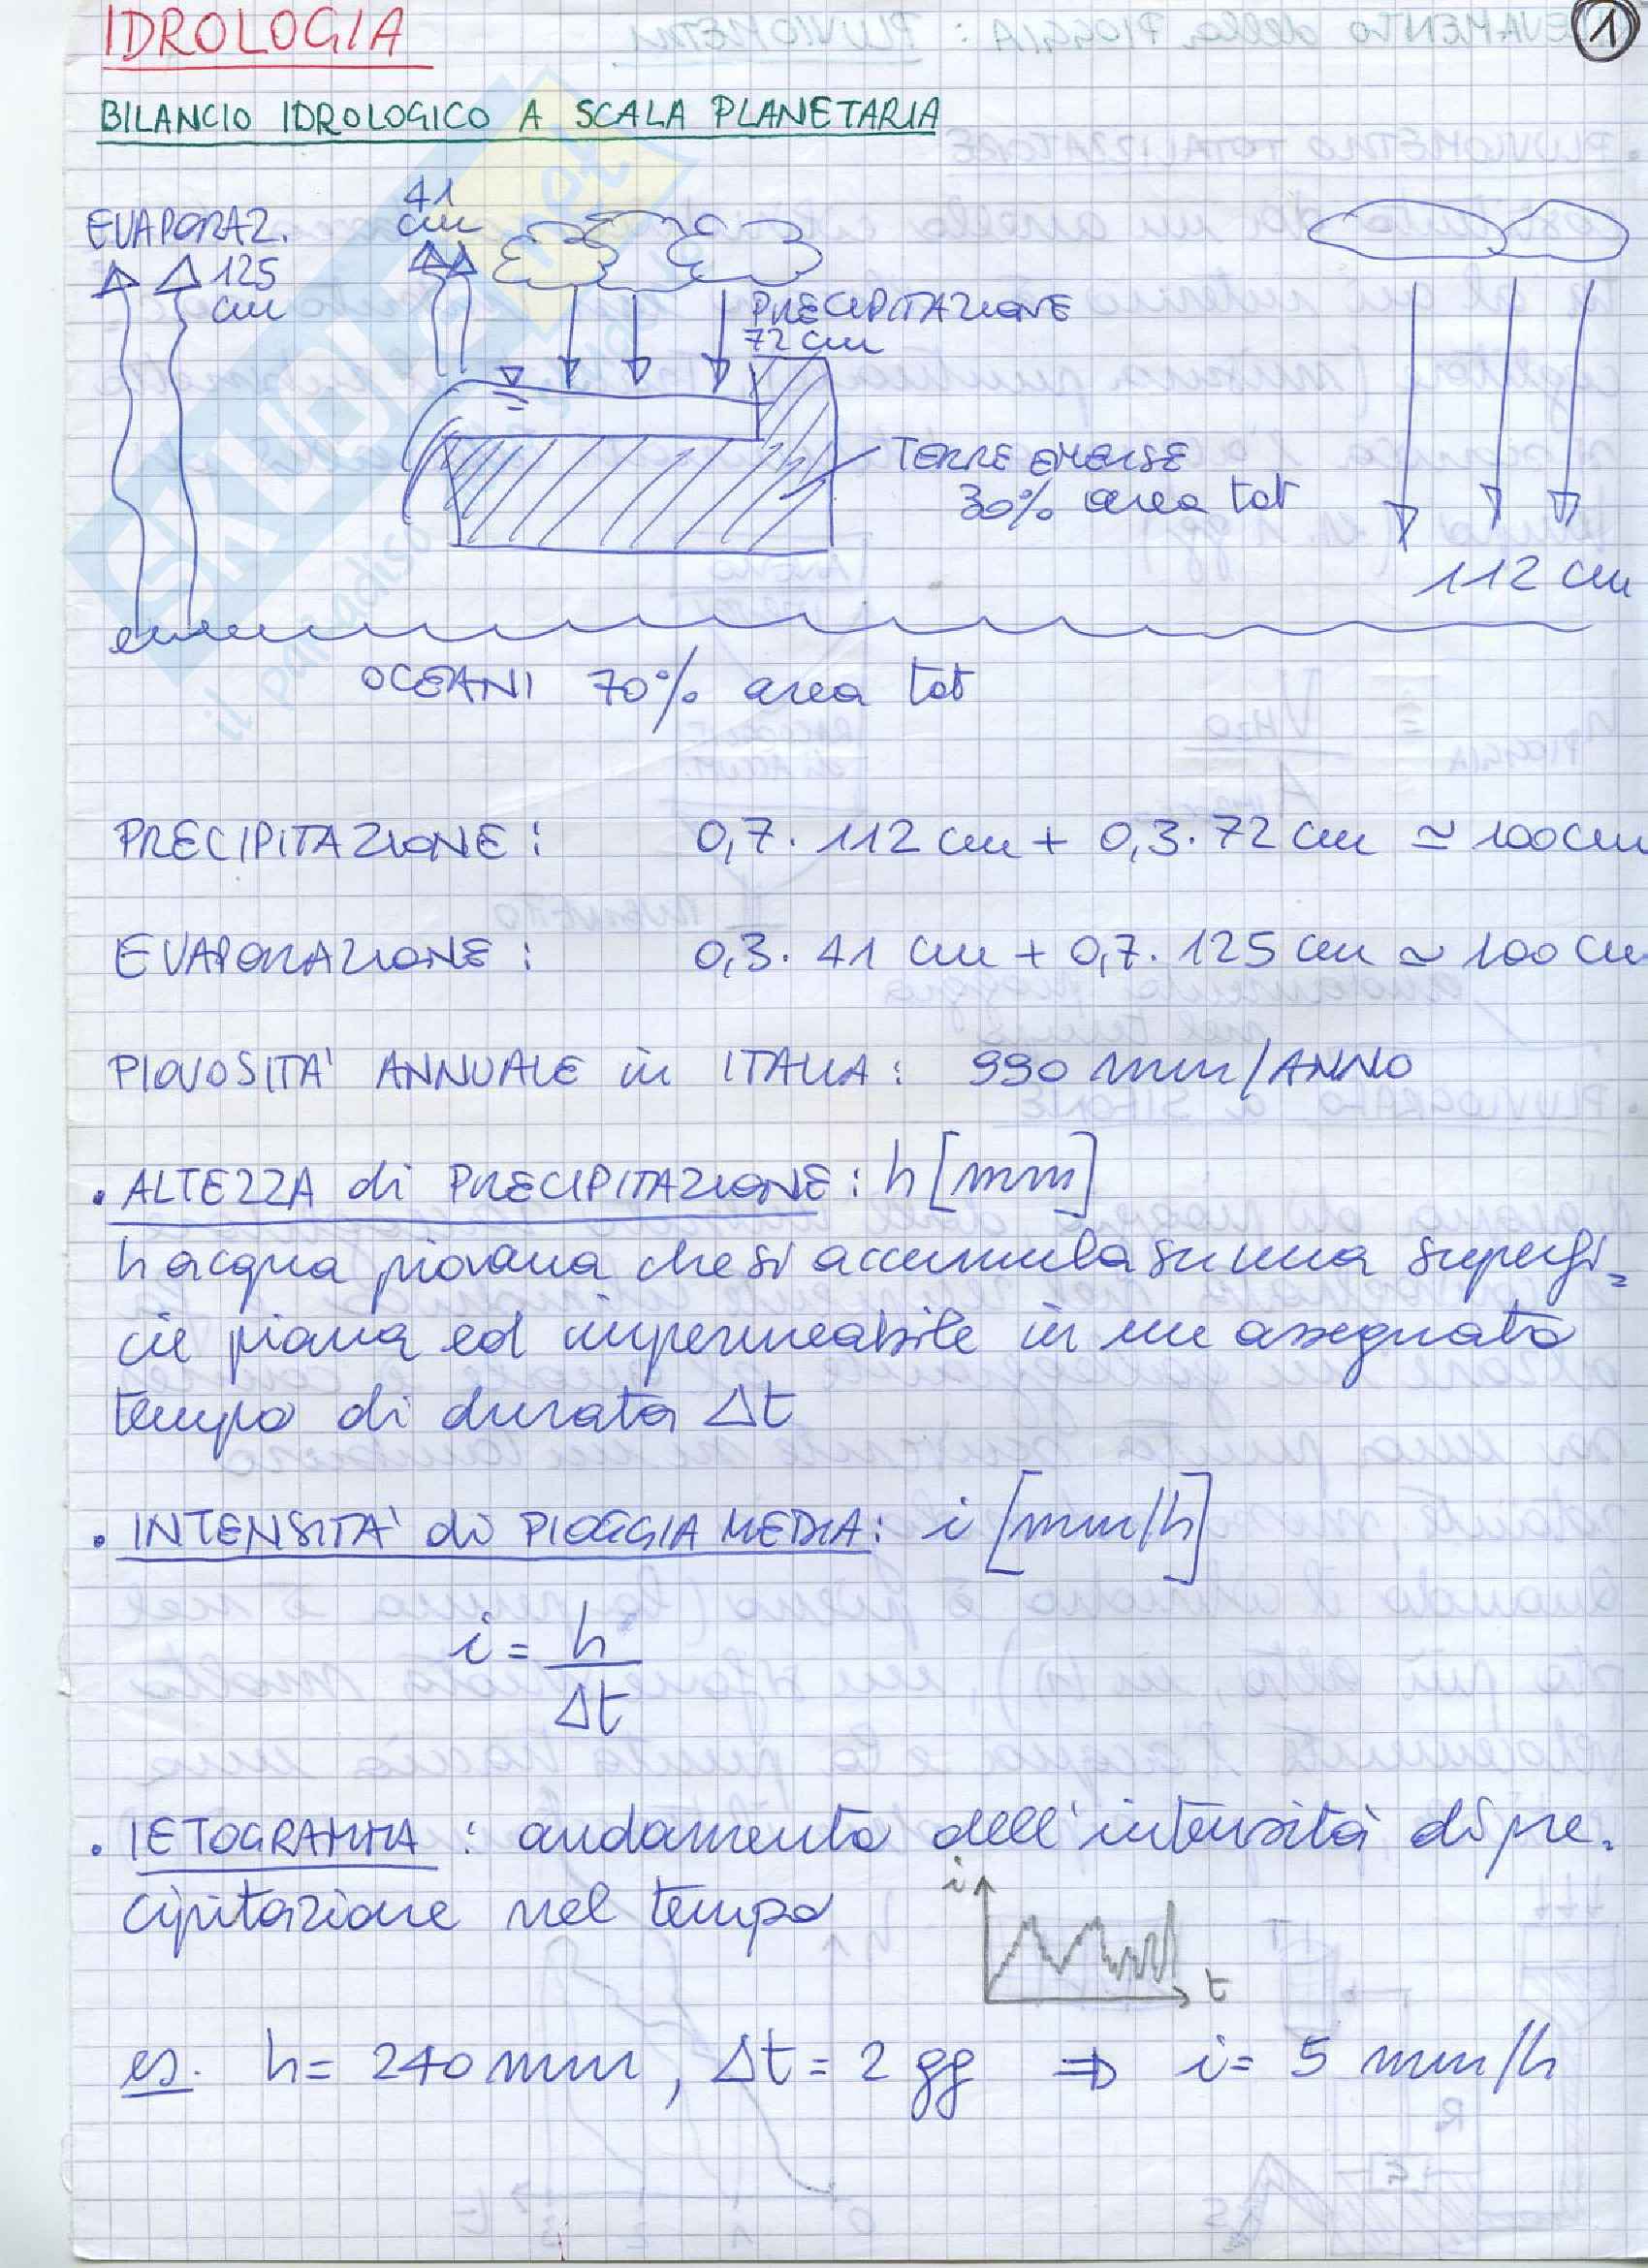 IDROLOGIA
1
BILANCIO IDROLOGICO A SCALA PLANETARIA
EVAPORAZ.
125
cm
41
cm
PRECIPITAZIONE
72 cm
TERRE EMERSE
30% area tot
112 cm
OCEANI 70% area tot
PRECIPITAZIONE: 0,7 · 112 cm + 0,3 · 72 cm ≃ 100 cm
EVAPORAZIONE: 0,3 · 41 cm + 0,7 · 125 cm ≃ 100 cm
PIOVOSITA' ANNUALE in ITALIA: 990 mm/ANNO
• ALTEZZA di PRECIPITAZIONE: h [mm]
h acqua piovana che si accumula su una superfi=
cie piana ed impermeabile in un assegnato
tempo di durata Δt
• INTENSITA' di PIOGGIA MEDIA: i [mm/h]
i = h
Δt
• IETOGRAMMA: andamento dell'intensità di pre-
cipitazione nel tempo
i
t
es. h = 240 mm, Δt = 2 gg ⇒ i = 5 mm/h